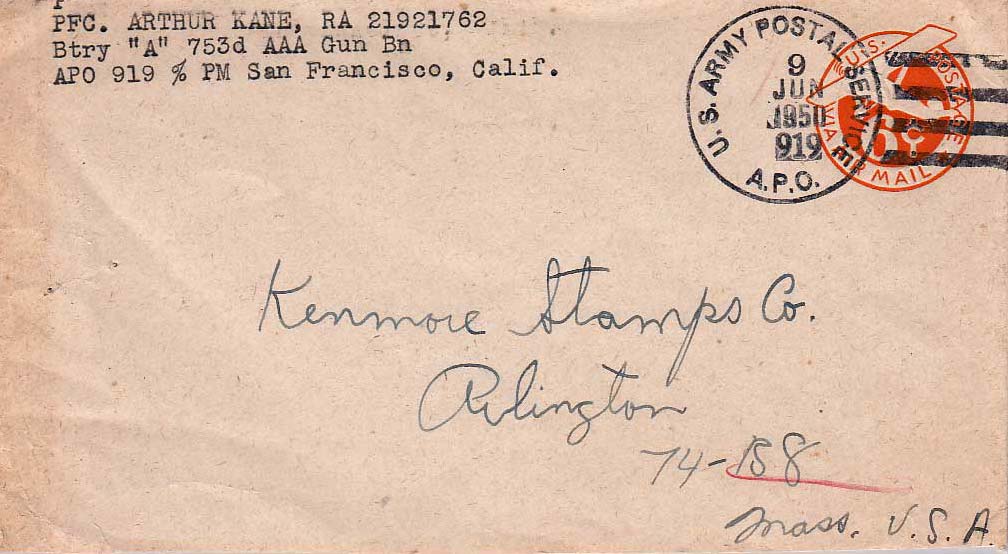 PFC. ARTHUR KANE, RA 21921762
Btry "A" 753d AAA Gun Bn
APO 919 % PM San Francisco, Calif.
U.S. ARMY POSTAL SERVICE
9
JUN
1950
919
A.P.O.
U.S. POSTAGE
6¢
VIA AIR MAIL
Kenmore Stamps Co.
Arlington
74-158
Mass. U.S.A.